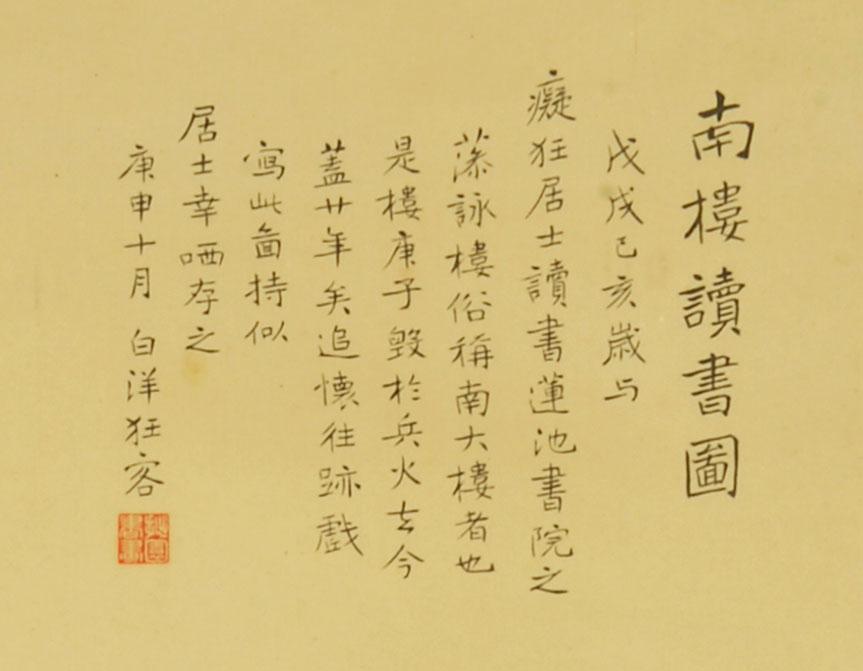 南樓讀書圖
戊戌己亥歲与
癡狂居士讀書蓮池書院之
藻詠樓俗稱南大樓者也
是樓庚子毀於兵火去今
蓋廿年矣追懷往跡戲
寫此啚持似
居士幸哂存之
庚申十月 白洋狂客